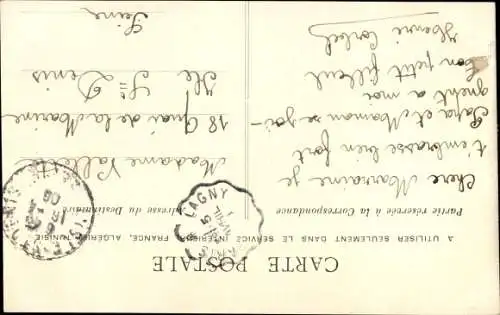 CARTE POSTALE
A UTILISER SEULEMENT DANS LE SERVICE INTÉRIEUR, FRANCE, ALGÉRIE, TUNISIE
Partie réservée à la Correspondance
Adresse du Destinataire
Chere Marraine je
t'embrasse bien fort
Papa et Maman se joi-
gnent a moi
Ton petit filleul
Henri Corbel
Madame Vallett
18 Quai de la Marine
Ile St Denis
Seine
LAGNY